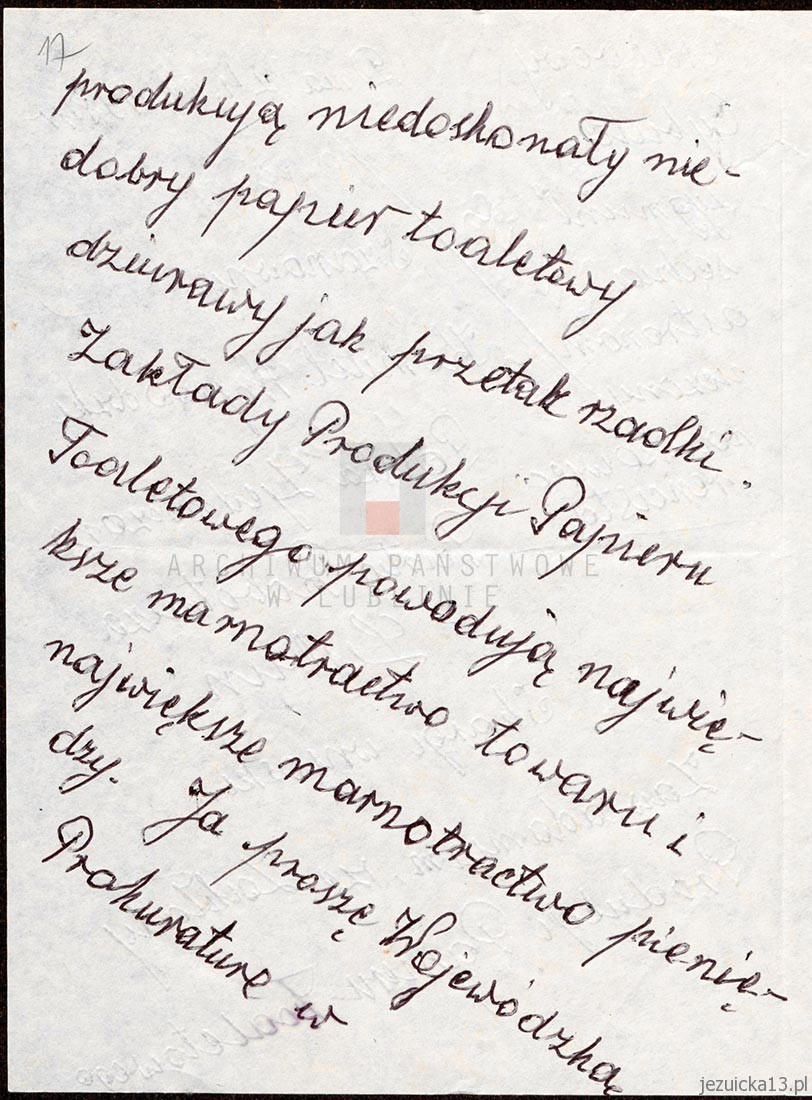 17
produkują niedoskonały nie-
dobry papier toaletowy
dziurawy jak przetak rzadki.
Zakłady Produkcji Papieru
Toaletowego powodują najwię-
ksze marnotractwo towaru i
największe marnotractwo pienię-
dzy. Ja proszę Wojewódzką
Prokuraturę w
ARCHIWUM PAŃSTWOWE
W LUBLINIE
jezuicka13.pl